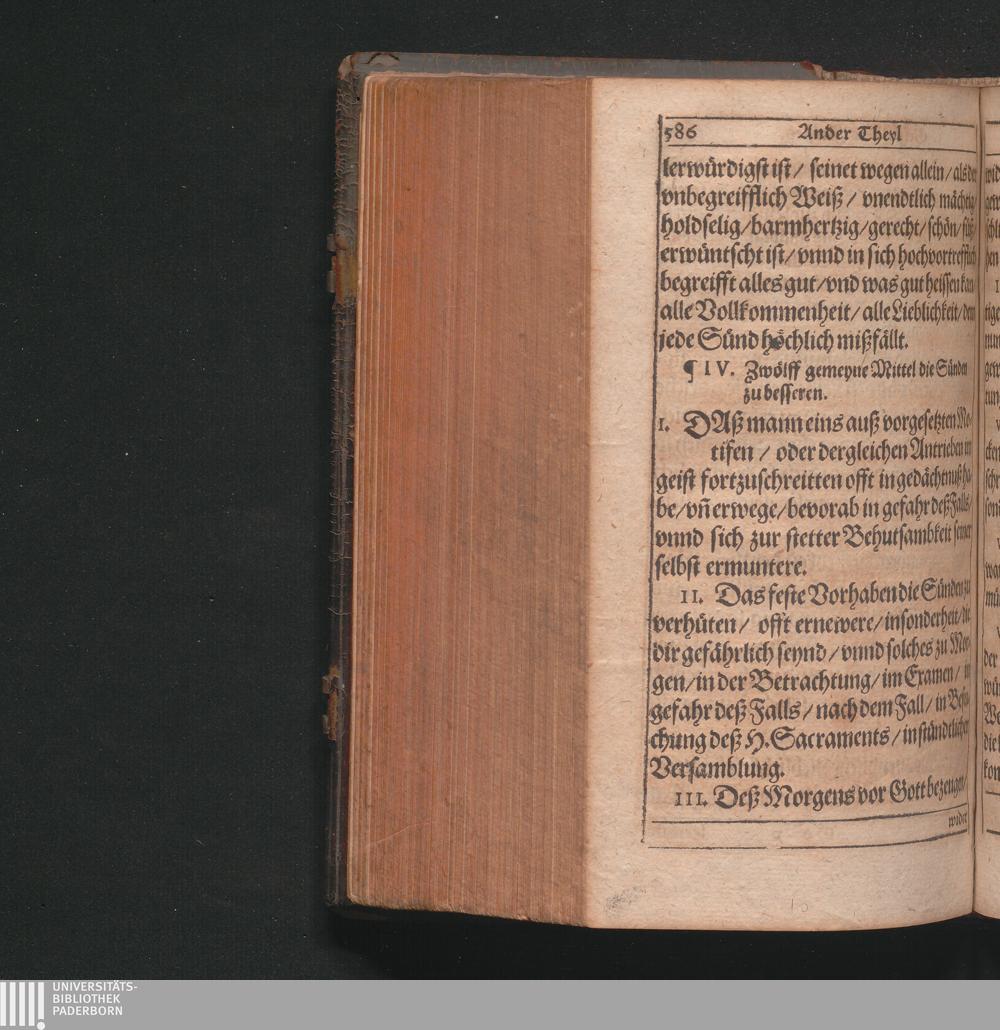 586 Ander Theyl
lerwürdigst ist / seinet wegen allein / als der
vnbegreifflich Weiß / vnendtlich mächtig
holdselig / barmhertzig / gerecht / schön / süß
erwüntscht ist / vnnd in sich hochvortrefflich
begreifft alles gut / vnd was gut heissen kan
alle Vollkommenheit / alle Lieblichkeit / dem
jede Sünd höchlich mißfällt.
¶ IV. Zwölff gemeyne Mittel die Sünden
zu besseren.
I. DAß mann eins auß vorgesetzten Mo-
tifen / oder dergleichen Antrieben im
geist fortzuschreitten offt in gedächtnuß ha-
be / vñ erwege / bevorab in gefahr deß Falls /
vnnd sich zur stetter Behutsambkeit seiner
selbst ermuntere.
II. Das feste Vorhaben die Sünden zu
verhüten / offt ernewere / insonderheit / die
dir gefährlich seynd / vnnd solches zu Mor-
gen / in der Betrachtung / im Examen / in
gefahr deß Falls / nach dem Fall / in Besu-
chung deß H. Sacraments / in stündtlicher
Versamblung.
III. Deß Morgens vor Gott bezeugen /
wider
UNIVERSITÄTS-
BIBLIOTHEK
PADERBORN